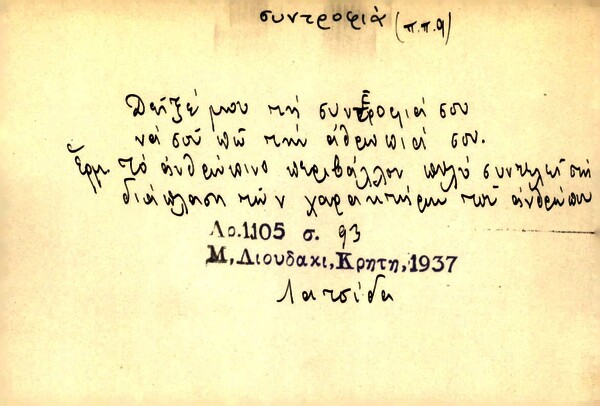 συντροφιά (π.π.9)
Δεῖξέ μου τή συντροφιά σου
νά σοῦ πῶ τήν ἀθρωπιά σου.
Ἑρμ. Τό ἀνθρώπινο περιβάλλον πολύ συντελεῖ στή
διάπλαση τῶν χαρακτήρων τοῦ ἀνθρώπου
Λρ.1105 σ. 93
Μ,Λιουδακι,Κρητη,1937
Λατσίδα